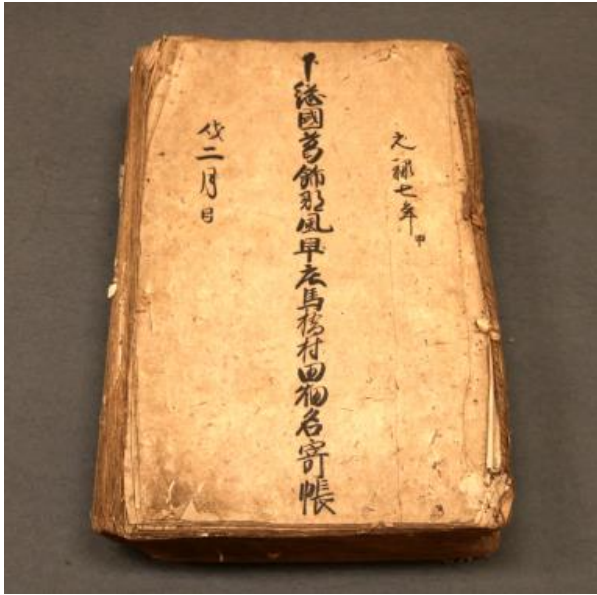 元禄七年甲
下総國葛飾郡風早庄馬橋村田畑名寄帳
戌二月日